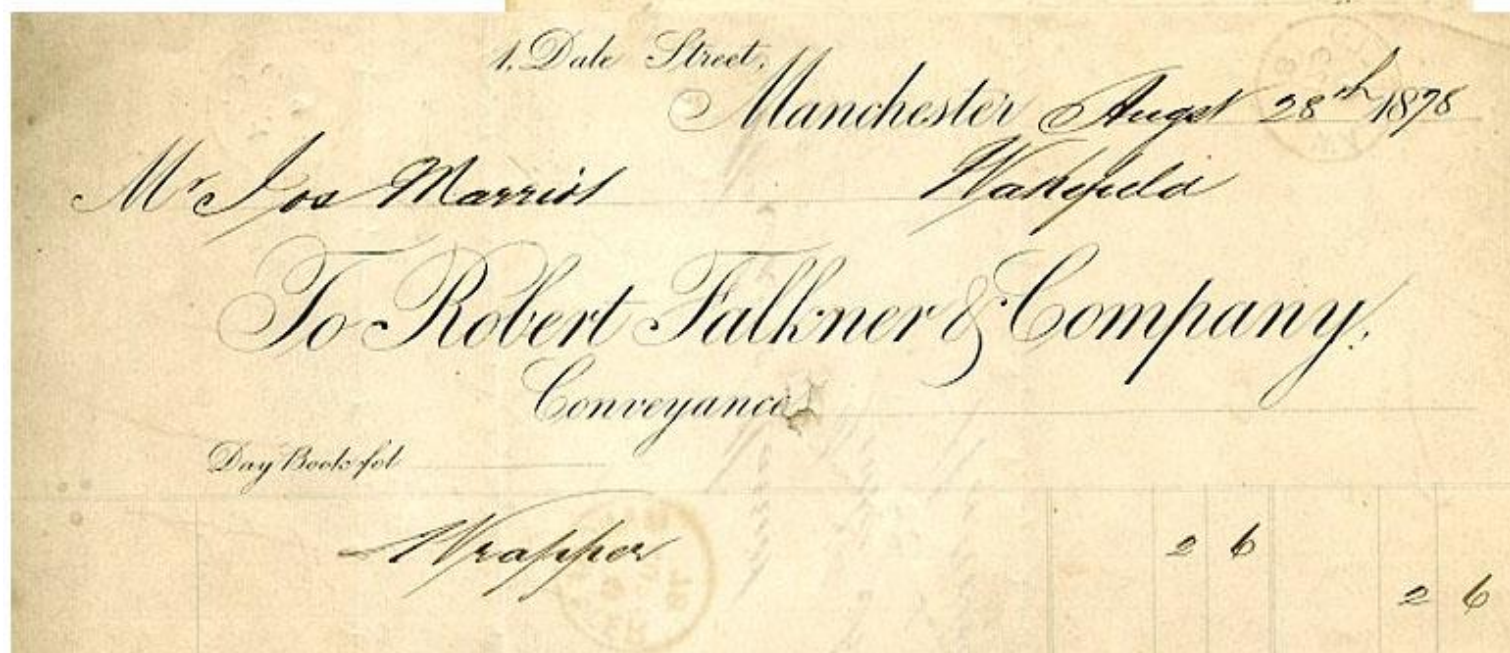 1, Dale Street,
Manchester Augst 28th 1878
Mr Jos Marriot Wakefield
To Robert Falkner & Company.
Conveyance
Day Book fol
Wrapper 2 6
2 6